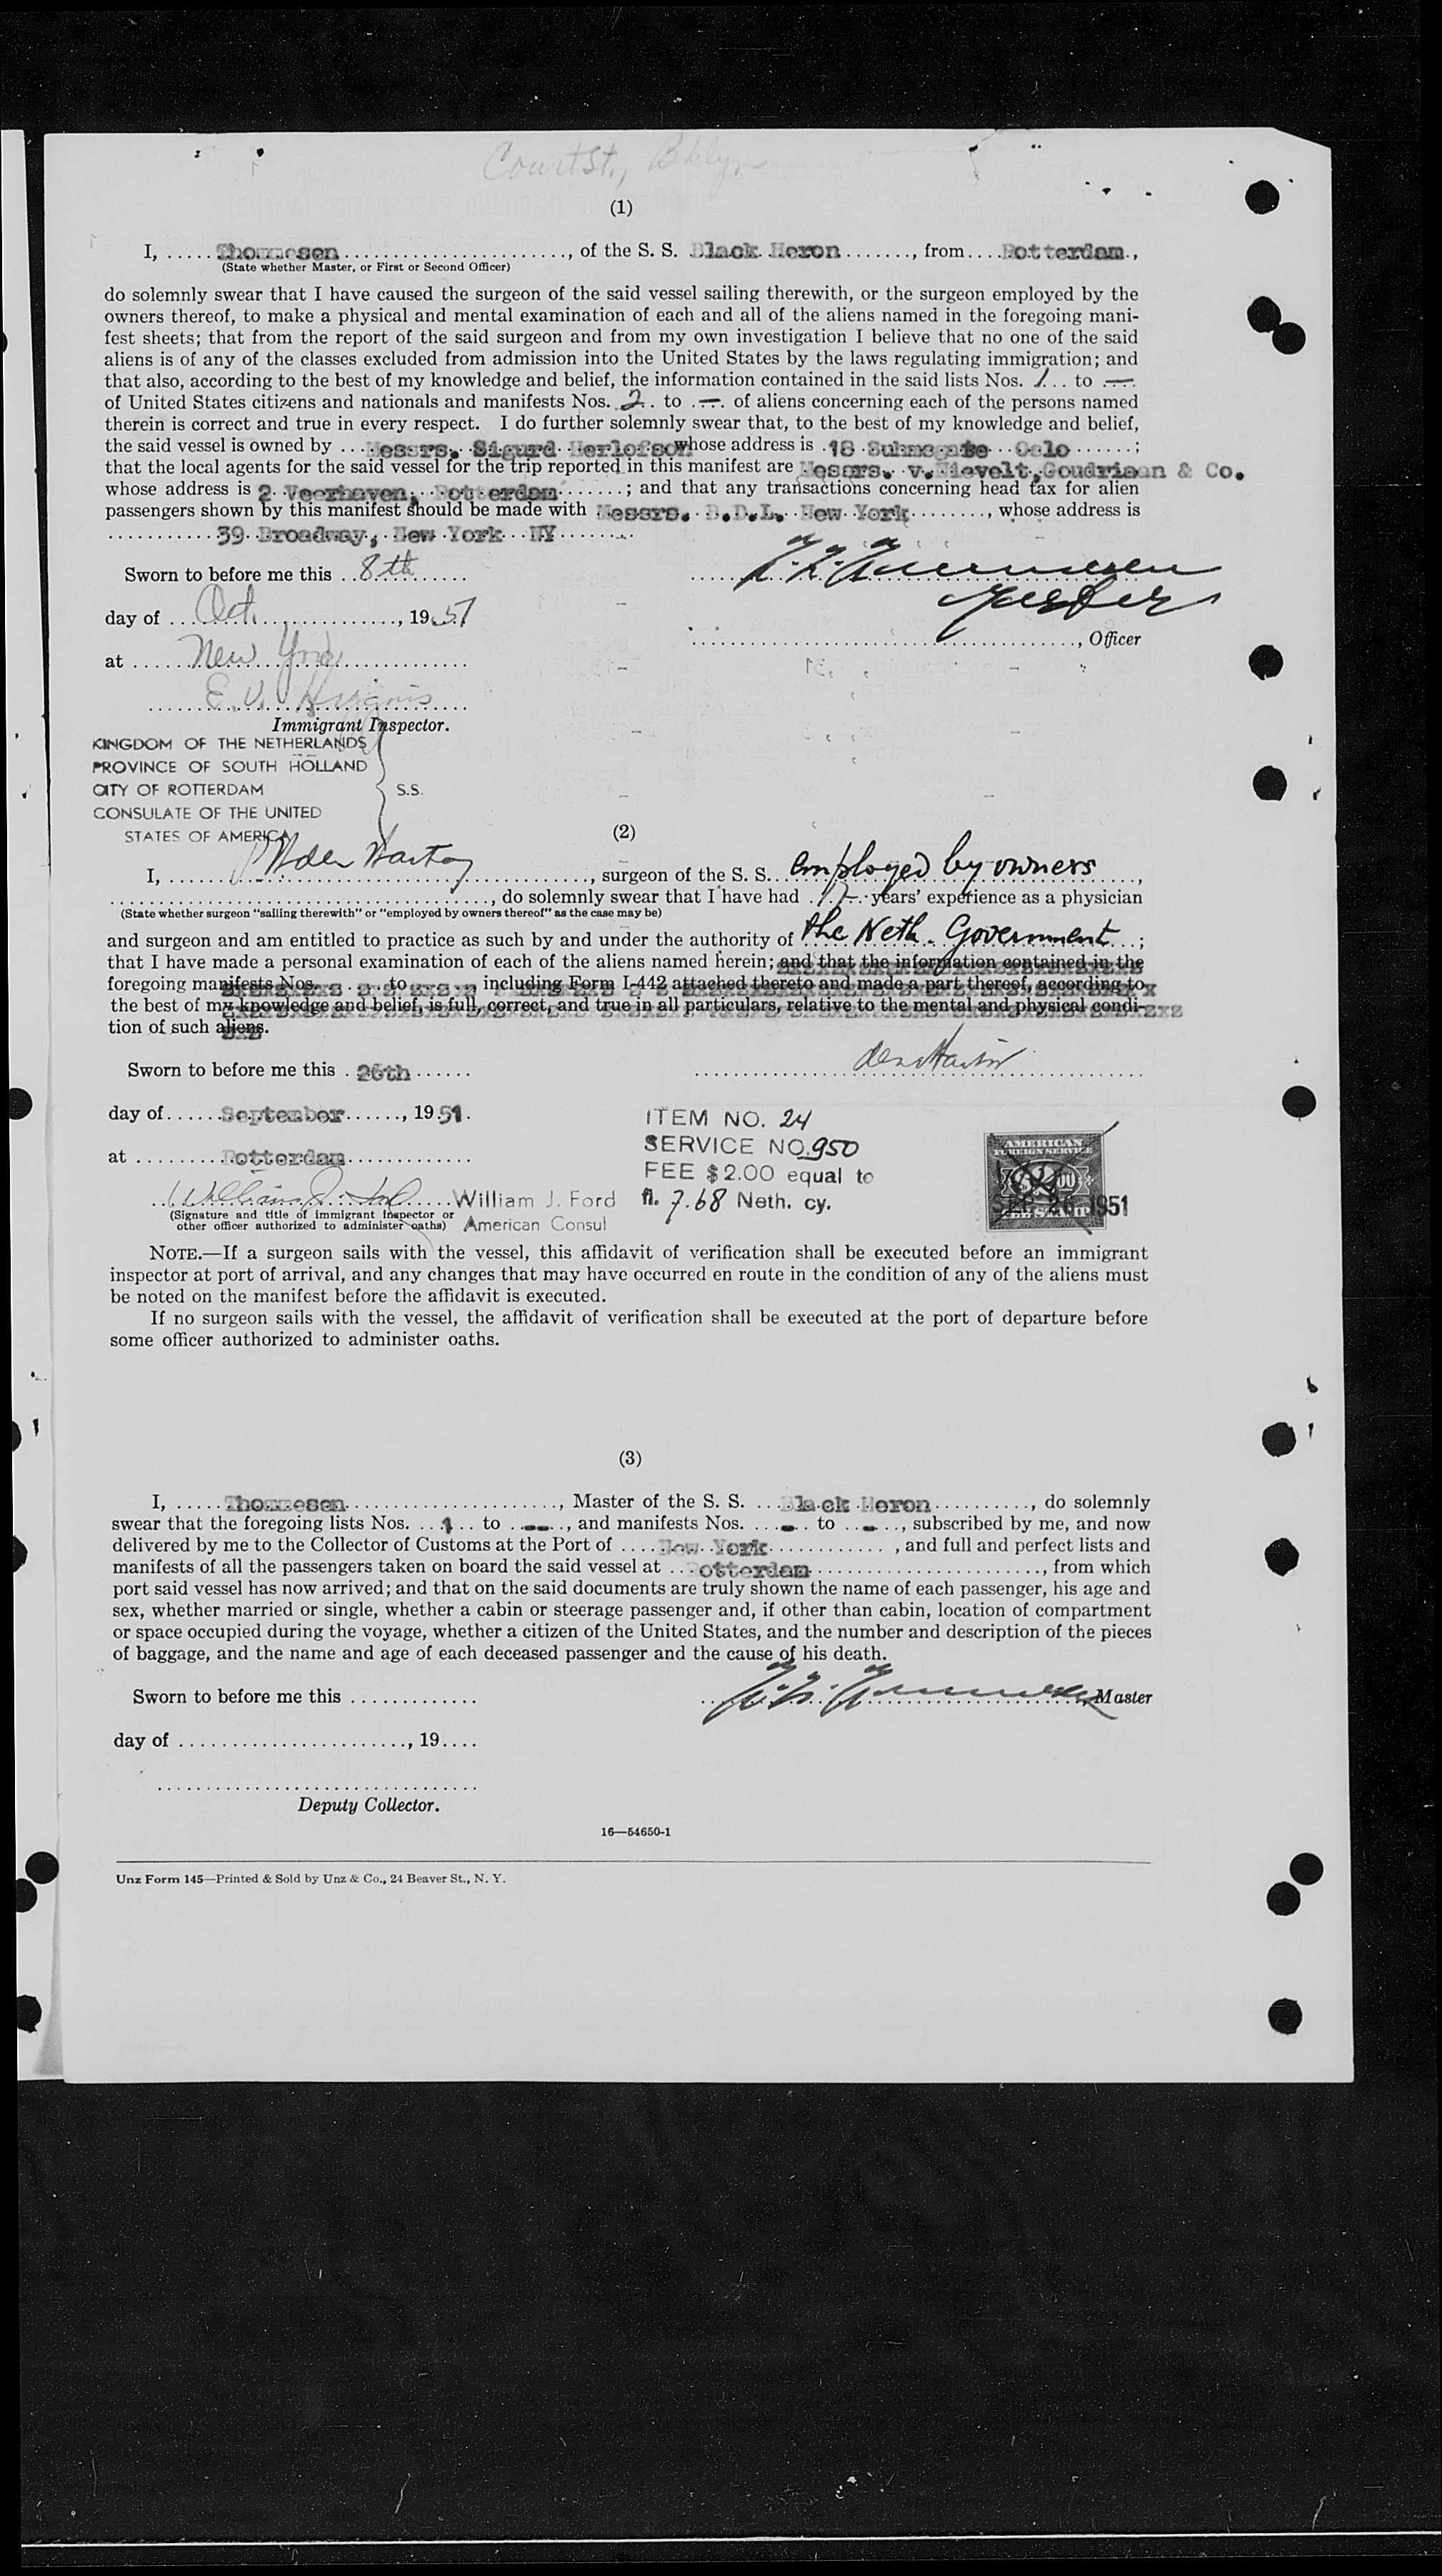 Court St., Bklyn
(1)
I, ..... Thommesen ......................, of the S. S. Black Heron ......., from .... Rotterdam .,
(State whether Master, or First or Second Officer)
do solemnly swear that I have caused the surgeon of the said vessel sailing therewith, or the surgeon employed by the
owners thereof, to make a physical and mental examination of each and all of the aliens named in the foregoing mani-
fest sheets; that from the report of the said surgeon and from my own investigation I believe that no one of the said
aliens is of any of the classes excluded from admission into the United States by the laws regulating immigration; and
that also, according to the best of my knowledge and belief, the information contained in the said lists Nos. 1 ... to .—.
of United States citizens and nationals and manifests Nos. 2 . to .—. of aliens concerning each of the persons named
therein is correct and true in every respect. I do further solemnly swear that, to the best of my knowledge and belief,
the said vessel is owned by ... Messrs. Sigurd Herlofson whose address is . 18 Oslo ......;
that the local agents for the said vessel for the trip reported in this manifest are Messrs. v. Nievelt, Goudriaan & Co.
whose address is 2 Veerhaven, Rotterdam .......; and that any transactions concerning head tax for alien
passengers shown by this manifest should be made with Messrs. B.D.L. New York ........., whose address is
........... 39 Broadway, New York NY ........
Sworn to before me this .. 8th ......
day of ... Oct. ..............., 19 51
at ...... New York .............
, Officer
E. V.
Immigrant Inspector.
KINGDOM OF THE NETHERLANDS
PROVINCE OF SOUTH HOLLAND
CITY OF ROTTERDAM
S.S.
CONSULATE OF THE UNITED
STATES OF AMERICA
(2)
I, ......................................, surgeon of the S. S. employed by owners ....,
......................................, do solemnly swear that I have had . 17 .. years' experience as a physician
(State whether surgeon "sailing therewith" or "employed by owners thereof" as the case may be)
and surgeon and am entitled to practice as such by and under the authority of the Neth. Government ...;
that I have made a personal examination of each of the aliens named herein; and that the information contained in the
foregoing manifests Nos. to including Form I-442 attached thereto and made a part thereof, according to
the best of my knowledge and belief, is full, correct, and true in all particulars, relative to the mental and physical condi-
tion of such aliens.
Sworn to before me this . 26th ......
day of ...... September ......, 19 51 .
at ......... Rotterdam .............
ITEM NO. 24
SERVICE NO. 950
FEE $2.00 equal to
fl. 7.68 Neth. cy.
AMERICAN
FOREIGN SERVICE
SEP 26 1951
William J. Ford
(Signature and title of immigrant inspector or
other officer authorized to administer oaths)
American Consul
NOTE.—If a surgeon sails with the vessel, this affidavit of verification shall be executed before an immigrant
inspector at port of arrival, and any changes that may have occurred en route in the condition of any of the aliens must
be noted on the manifest before the affidavit is executed.
If no surgeon sails with the vessel, the affidavit of verification shall be executed at the port of departure before
some officer authorized to administer oaths.
(3)
I, ..... Thommesen ......................, Master of the S. S. ... Black Heron .........., do solemnly
swear that the foregoing lists Nos. .. 1 .. to .. -- .., and manifests Nos. ... - .. to .. - ..., subscribed by me, and now
delivered by me to the Collector of Customs at the Port of .... New York ............, and full and perfect lists and
manifests of all the passengers taken on board the said vessel at .. Rotterdam ........................, from which
port said vessel has now arrived; and that on the said documents are truly shown the name of each passenger, his age and
sex, whether married or single, whether a cabin or steerage passenger and, if other than cabin, location of compartment
or space occupied during the voyage, whether a citizen of the United States, and the number and description of the pieces
of baggage, and the name and age of each deceased passenger and the cause of his death.
Sworn to before me this .............
, Master
day of ........................, 19....
Deputy Collector.
16—54650-1
Unz Form 145—Printed & Sold by Unz & Co., 24 Beaver St., N. Y.